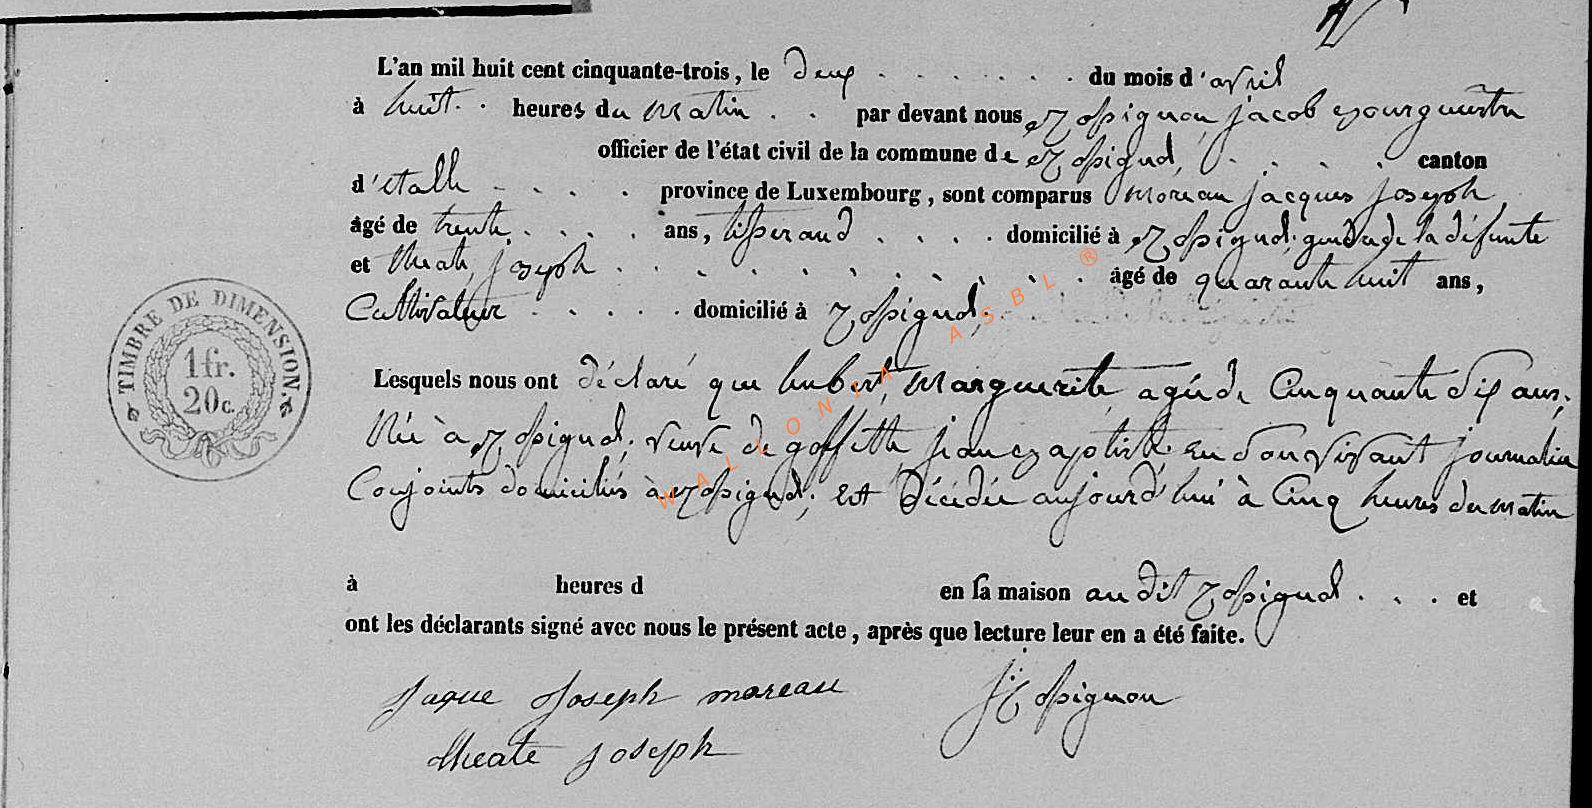 L'an mil huit cent cinquante-trois, le deux . . . . . . . du mois d'avril
à huit . . heures du matin . . par devant nous Rossignon, jacob Bourguèstre
officier de l'état civil de la commune de Rossignol, . . . . canton
d'étalle - . . . province de Luxembourg, sont comparus Moreau jacques joseph,
âgé de trente . . . . ans, tisserand . . . . domicilié à Rossignol, gendre de la défunte
et theate, joseph . . . . . . . . . . . . âgé de quarante huit ans,
Cultivateur . . . . . domicilié à Rossignol.
Lesquels nous ont déclaré que hubert, Marguerite, agée de Cinquante six ans,
Née à Rossignol, veuve de goffette jean Baptiste, en son vivant journalier
Conjoints domiciliés à Rossignol, est décédée aujourd'hui à Cinq heures du matin
à heures d en sa maison audit Rossignol . . . et
ont les déclarants signé avec nous le présent acte, après que lecture leur en a été faite.
Jaque Joseph moreau
J Rossignon
theate joseph
TIMBRE DE DIMENSION.
1 fr.
20 c.
WALLONIA ASBL ®